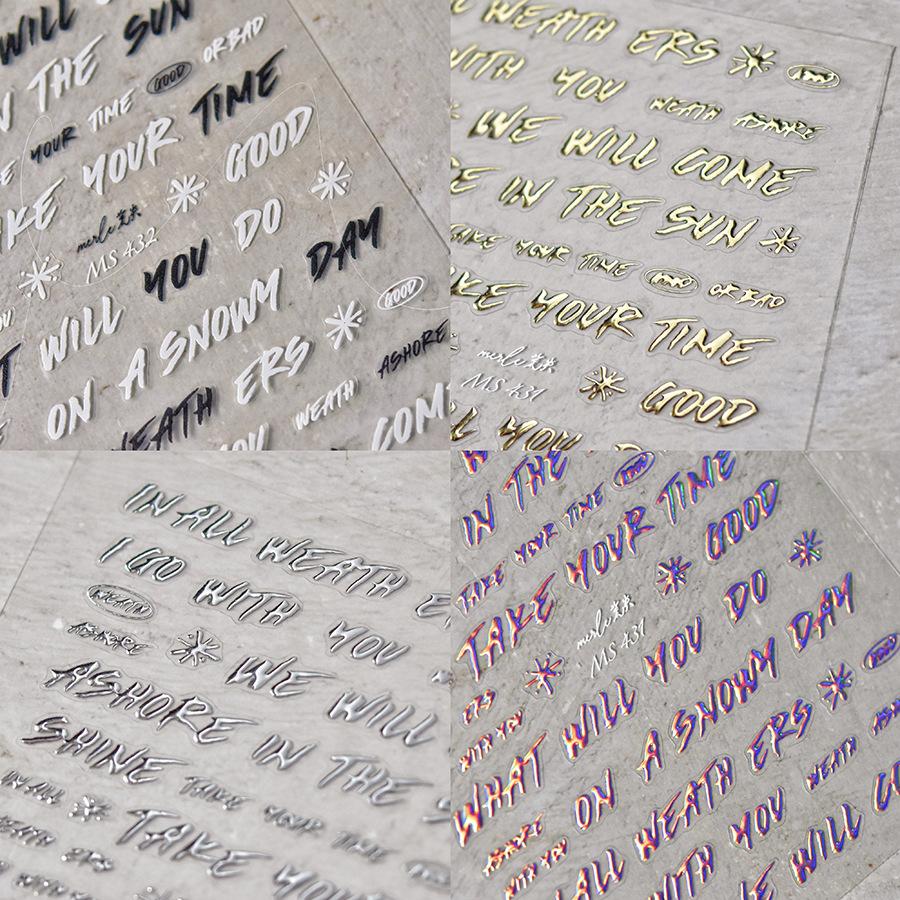 WILL
SUN
IN THE
YOUR TIME GOOD OR BAD
TAKE YOUR TIME
merle 美未
MS 432
GOOD
WILL YOU DO
ON A SNOWY DAY
WEATH ERS GOOD
WEATH ASHORE
YOU
COM
WEATH ERS
WITH YOU WEATH ASHORE
WE WILL COME
IN THE SUN
TAKE YOUR TIME OR BAD
TAKE YOUR TIME
merle 美未
MS 431
GOOD
YOU
IN ALL WEATH
I GO WITH YOU
WEATH
ASHORE
WE WILL
ASHORE IN THE
SHINE TAKE YOUR TIME
IN ALL
TAKE YOU
WEATH ERS
WITH YOU
IN THE
TAKE YOUR TIME
TAKE YOUR TIME
merle 美未
MS 431
GOOD
ERS
WITH YOU
WHAT WILL YOU DO
ON A SNOWY DAY
GOOD
ASHORE
WITH YOU
ALL WEATH ERS
WITH YOU WEATH
WE WILL